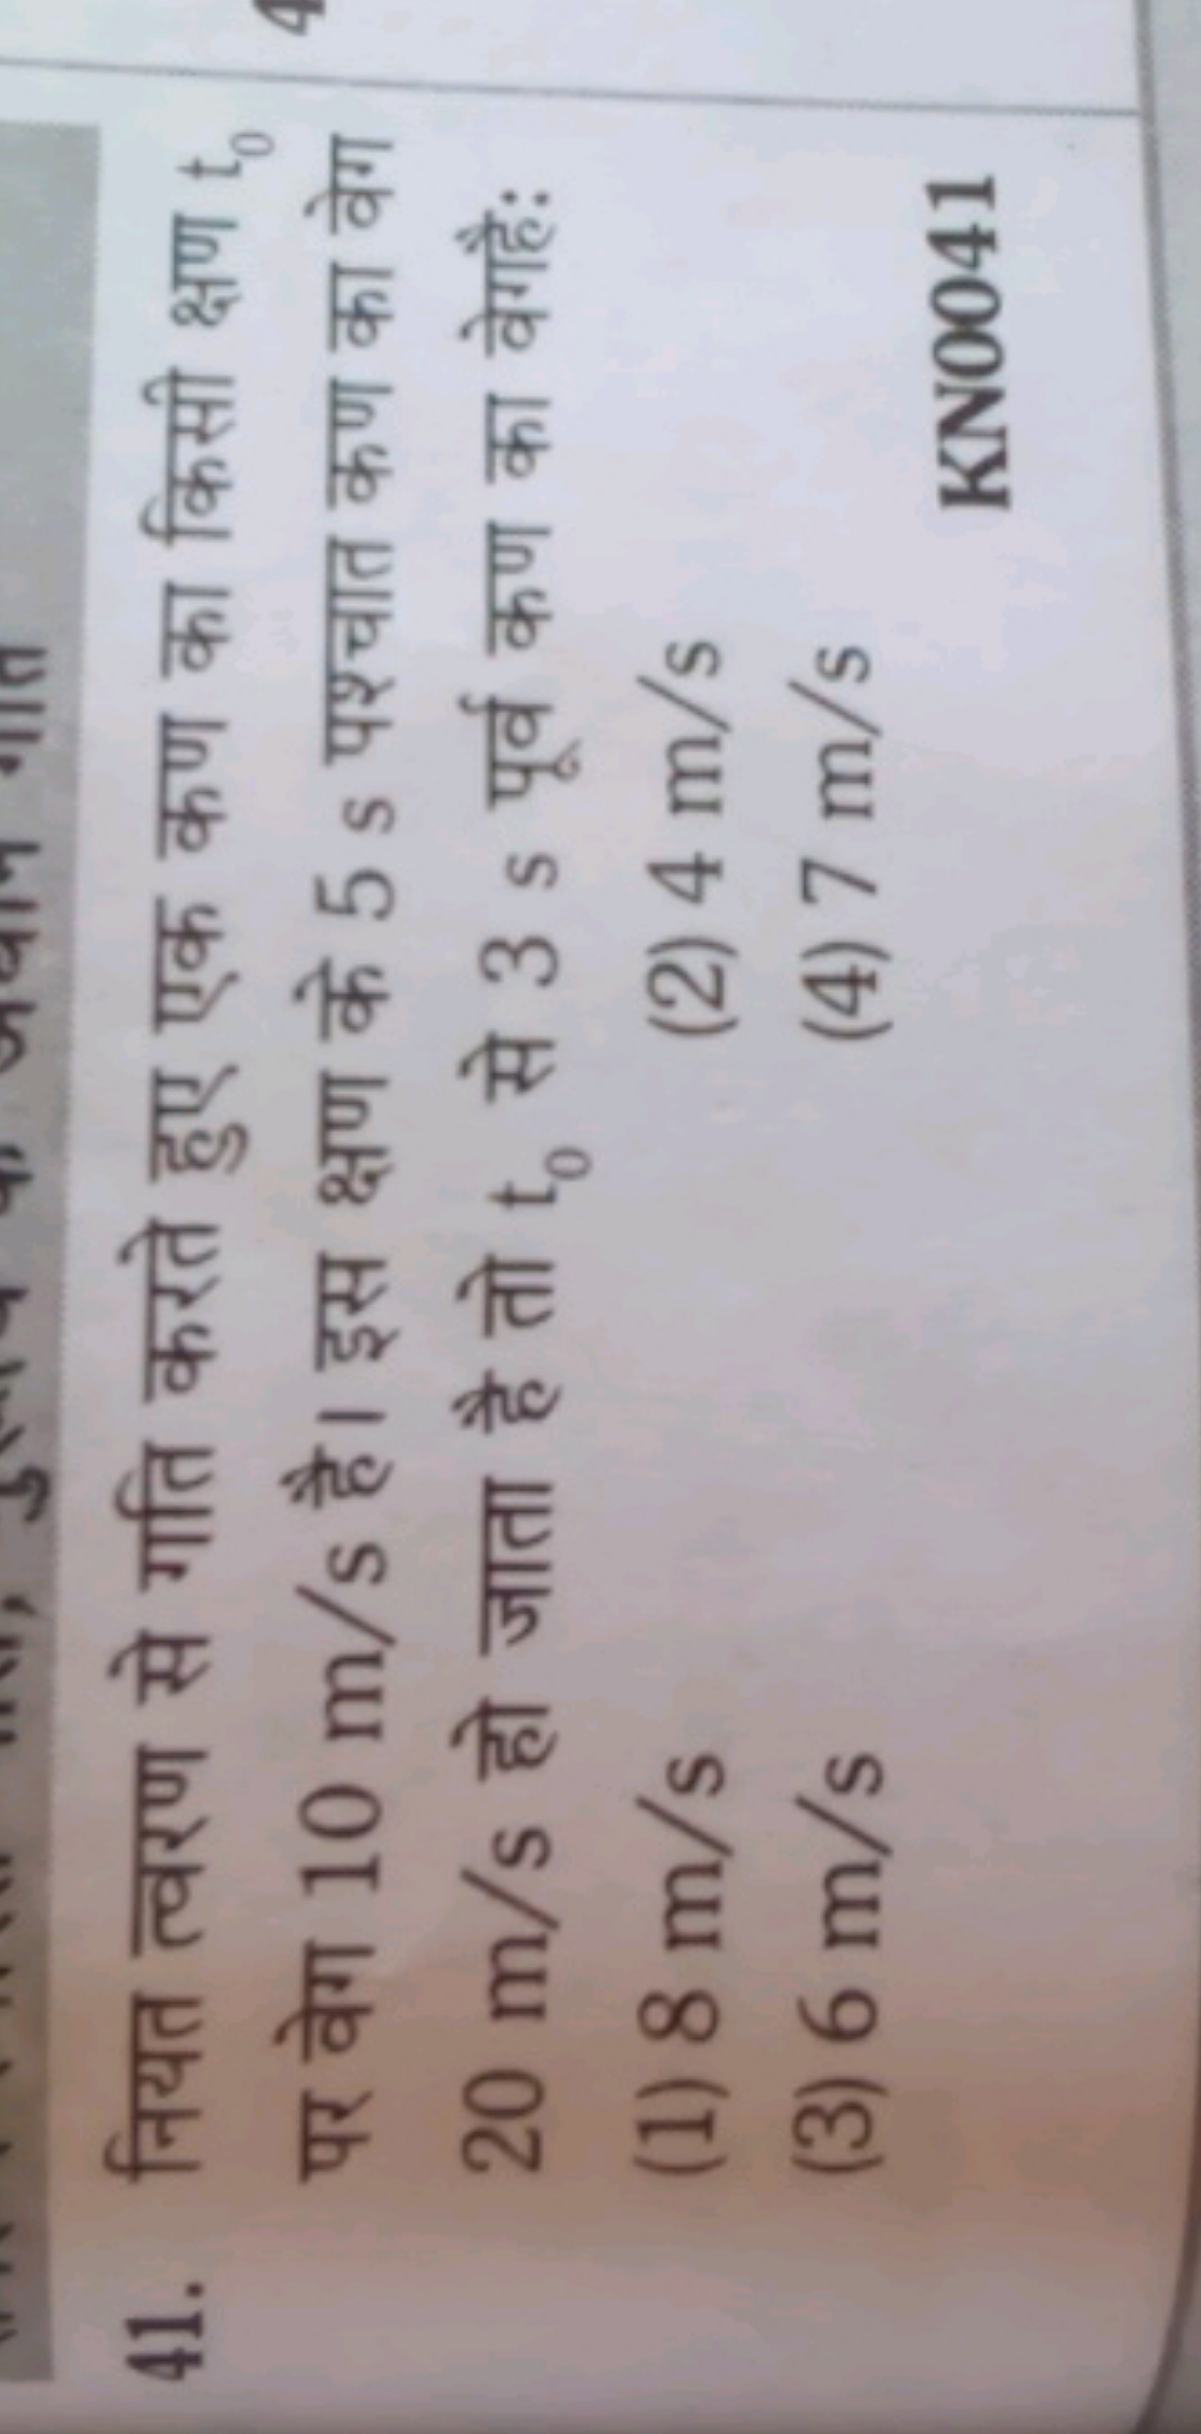 41. नियत त्वरण से गति करते हुए एक कण का किसी क्षण t₀
पर वेग 10 m/s है। इस क्षण के 5 s पश्चात कण का वेग
20 m/s हो जाता है तो t₀ से 3 s पूर्व कण का वेगहै:
(1) 8 m/s (2) 4 m/s
(3) 6 m/s (4) 7 m/s
KN0041
4